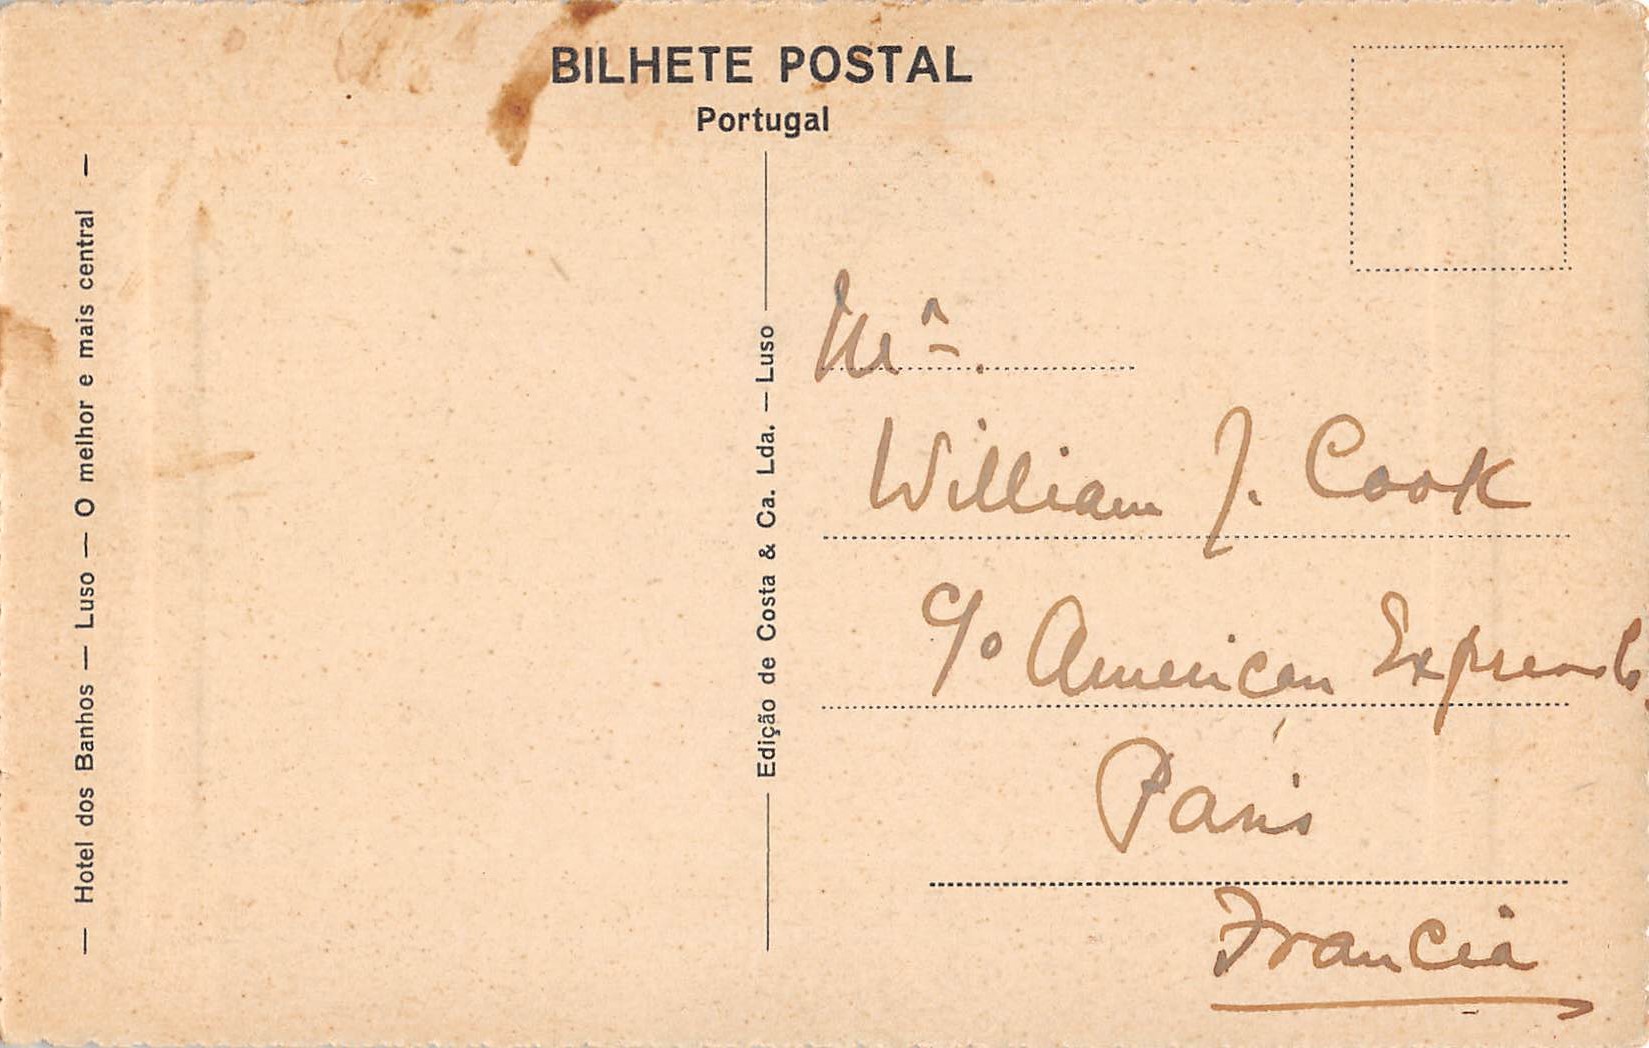 BILHETE POSTAL
Portugal
— Hotel dos Banhos — Luso — O melhor e mais central —
Edição de Costa & Ca. Lda. — Luso
Mr.
William J. Cook
c/o American Express Co.
Paris
Francia